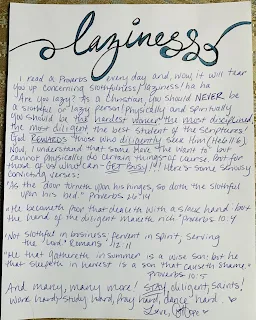 laziness
I read a Proverbs every day and, wow, it will tear
you up concerning slothfulness/laziness! ha ha
Are you lazy? As a Christian, you should NEVER be
a slothful or lazy person! Physically and spiritually
you should be the hardest worker, the most disciplined,
the most diligent, the best student of the scriptures!
God REWARDS those who diligently seek Him (Heb 11:6).
Now, I understand that some here want to but
cannot physically do certain things of course. But for
those of us who can - GET BUSY!!! Here's some seriously
convicting verses:
"As the door turneth upon his hinges, so doth the slothful
upon his bed." Proverbs 26:14
"He becometh poor that dealeth with a slack hand: but
the hand of the diligent maketh rich." Proverbs 10:4
"Not slothful in business; fervent in spirit; serving
the Lord" Romans 12:11
"He that gathereth in summer is a wise son: but he
that sleepeth in harvest is a son that causeth shame."
Proverbs 10:5
And many, many more! Stay diligent, saints!
Work hard, study hard, pray hard, dance hard.
Love,